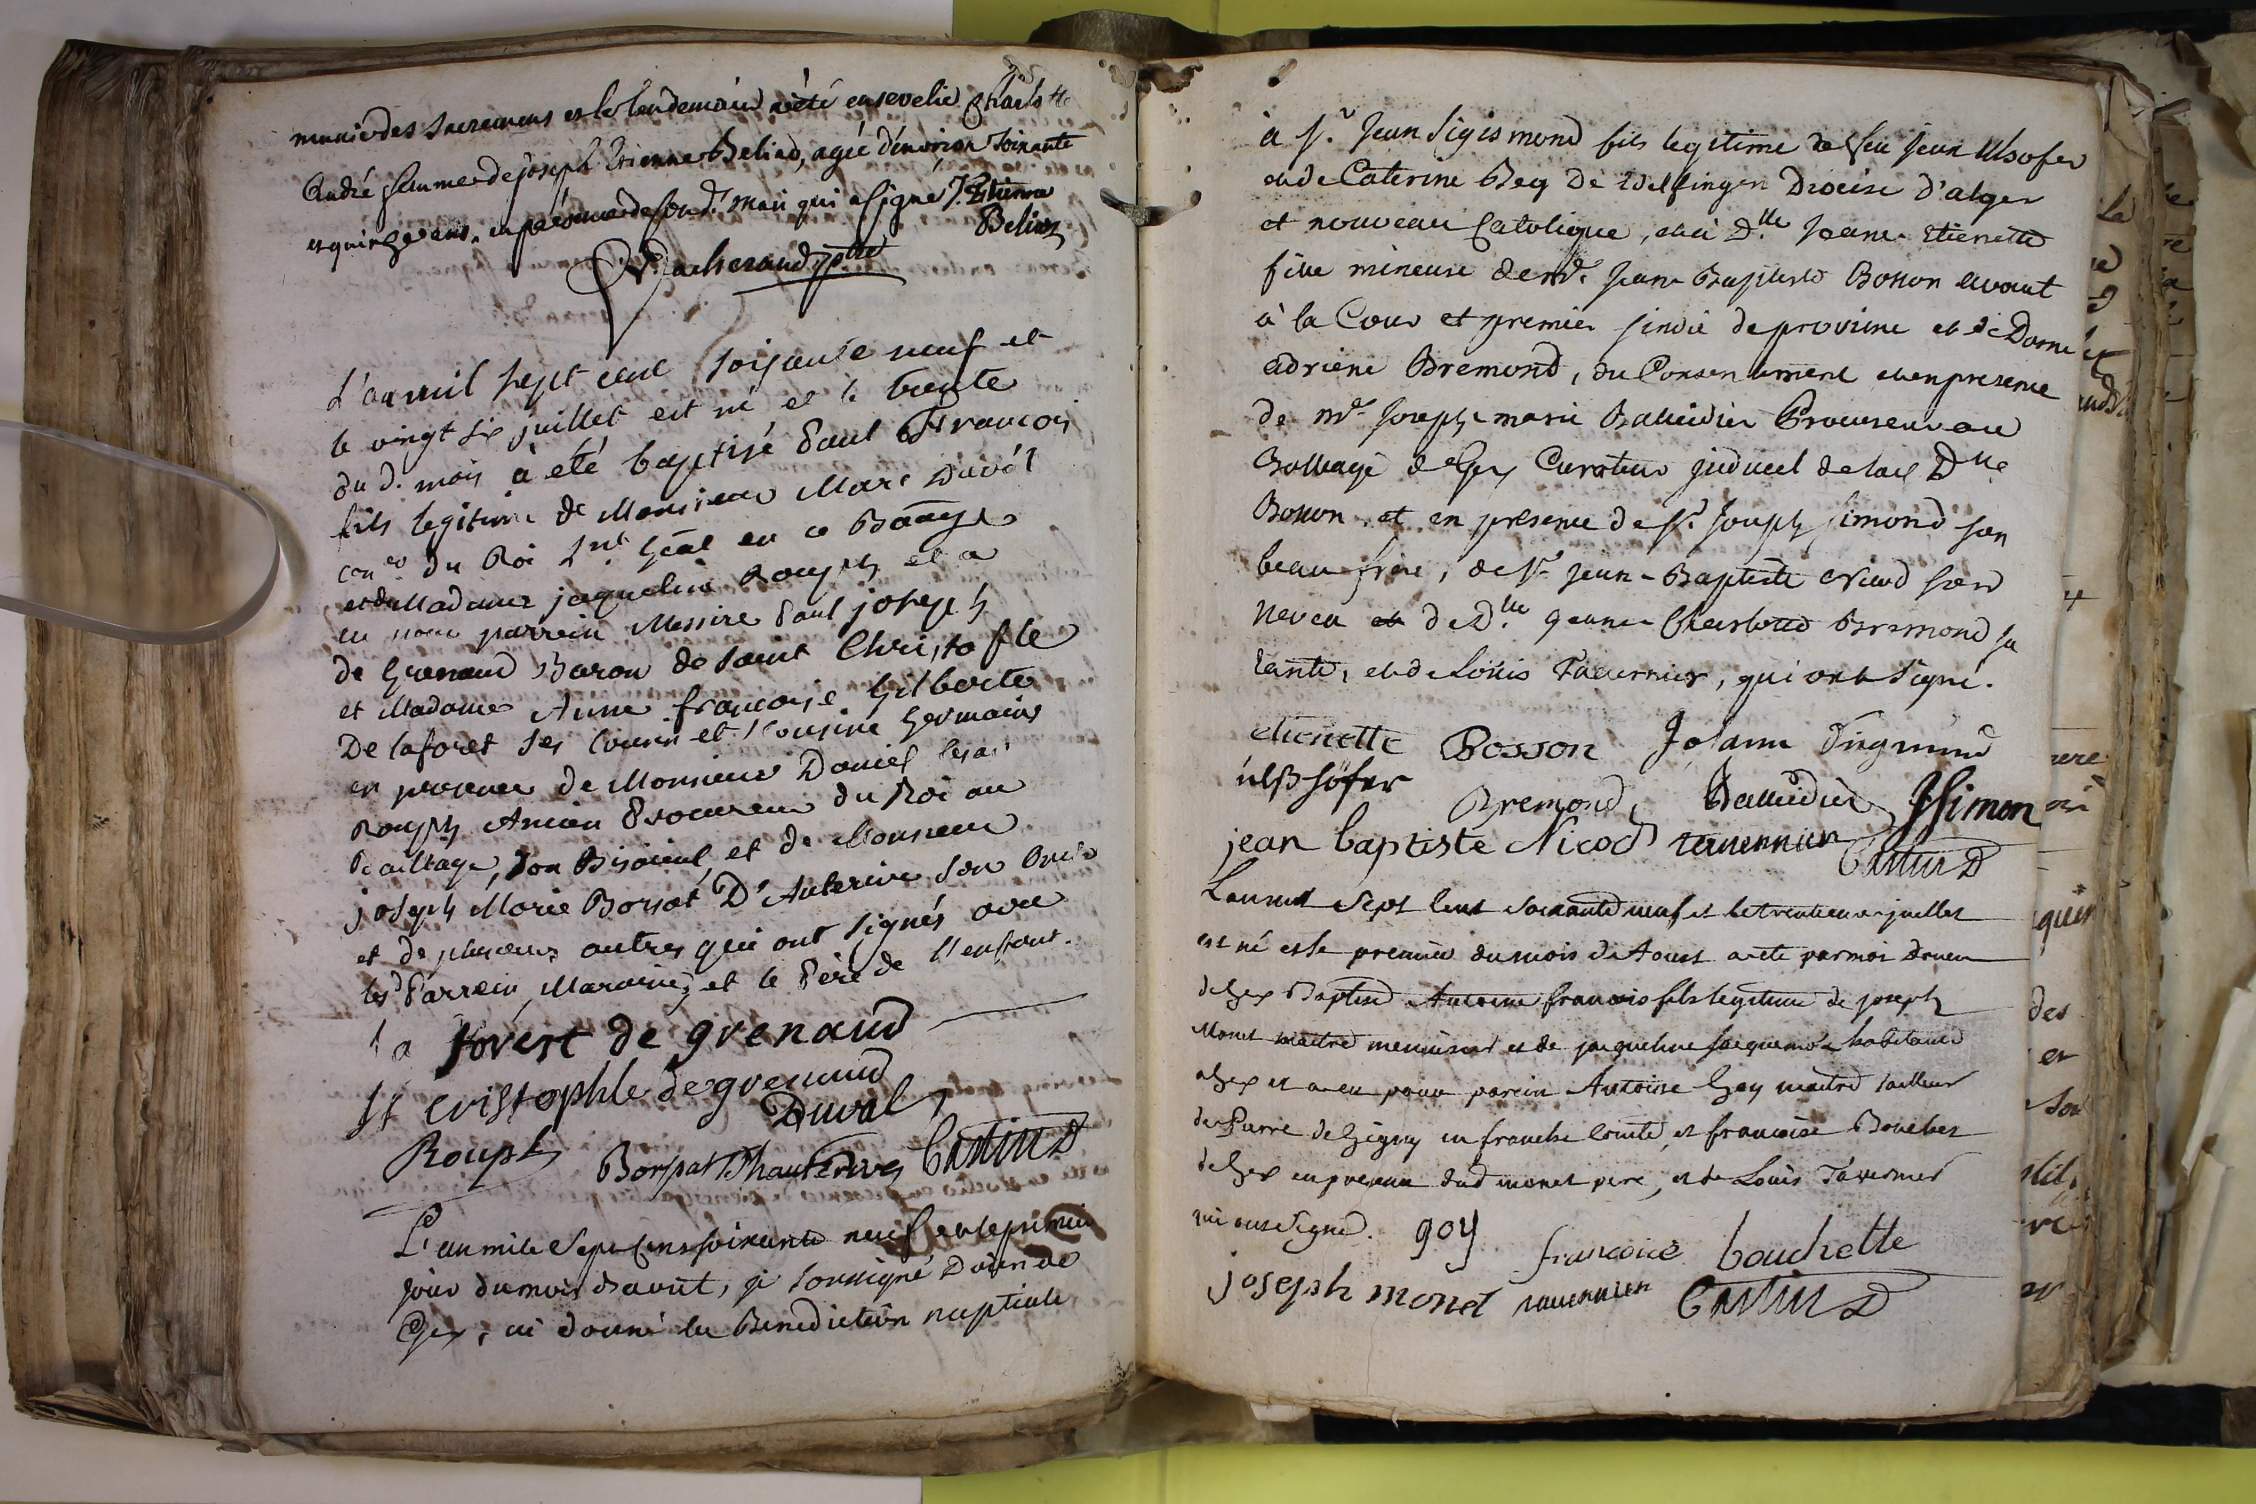 munie des sacremens et le lendemain a été ensevelie Charlotte
André femme de joseph Etienne Beliad, agée d'environ soixante
et quinze ans, en présence de son d. mari qui a signé J. Etienne
Beliaz
Vacherand ptre
L'an mil sept cent soisante neuf et
le vingt six juillet est né et le trente
du d. mois à eté baptisé Paul François
fils legitime de Monsieur Marc Duval
con.er du Roi L.nt Gãl en ce Baãge
et de Madame jaqueline Rouph et a
eu pour parrein Messire Paul joseph
de Grenaud Baron de saint Christofle
et Madame Anne françoise Gilberte
De laforet ses Cousin et Cousine Germains
en presence de Monsieur Daniel
Rouph Ancien Procureur du Roi au
Bailliage, son Bisaieul, et de Monsieur
joseph Marie Borsat D'Auterive son Oncle
et de plusieurs autres qui ont signés avec
les d. Parrein, Mareine, et le Père de l'enfant.
la forest de grenaud
st cristophle de grenaud
Duval
Rouph Borsat D'hauterive Castin D
L'an mile Sept Cens soixante neuf et le premier
jour du mois d'aout, je soussigné Doien de
Gex, ai donné la Benediction nuptiale
à S.r Jean Sigismond fils legitime de feu Jean Ulsofer
et de Caterine Beg de Diocise d'
et nouveau Catolique, et à D.lle Jeane Etienette
fille mineure de m.e Jean Baptiste Bosson avocat
à la Cour et premier sindic de province et de Dame
adriene Bremond, du Consentement et en presence
de m.e Joseph marie Balleidier Procureur au
Bailliage de Gex Curateur judiciel de lad. D.lle
Bosson, et en presence de S.r Joseph Simond son
beau frere, de S.r Jean-Baptiste Nicod son
neveu et de D.lle Jeane Charlotte Bremond sa
tante, et de Loüis Tavernier, qui ont signé.
etienette Bosson Johann Sigmund
ülßhöfer Bremond Balleidier J Simon
jean baptiste Nicod tavernier Castin D
L'an mil Sept Cent Soixante neuf et le trentieme juillet
est né et le premier du mois de Aoust a eté par moi Doien
de Gex Baptisé Antoine francois fils legitime de joseph
Monet maitre menuisier et de jaqueline habitans
a Gex et a eu pour parein Antoine Goy maitre tailleur
de Pierre de Gigny en franche Comté, et francoise Bouchet
de Gex en presence dud monet pere, et de Louis Tavernier
qui ont Signé. goy francoise bouchette
joseph monet tavernier Castin D